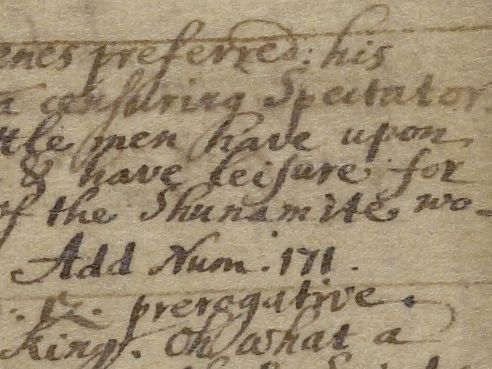 enes preferred: his
a censuring Spectator
ttle men have upon
& have leisure for
of the Shunamite wo-
Add Num. 171.
prerogative.
King. Oh what a